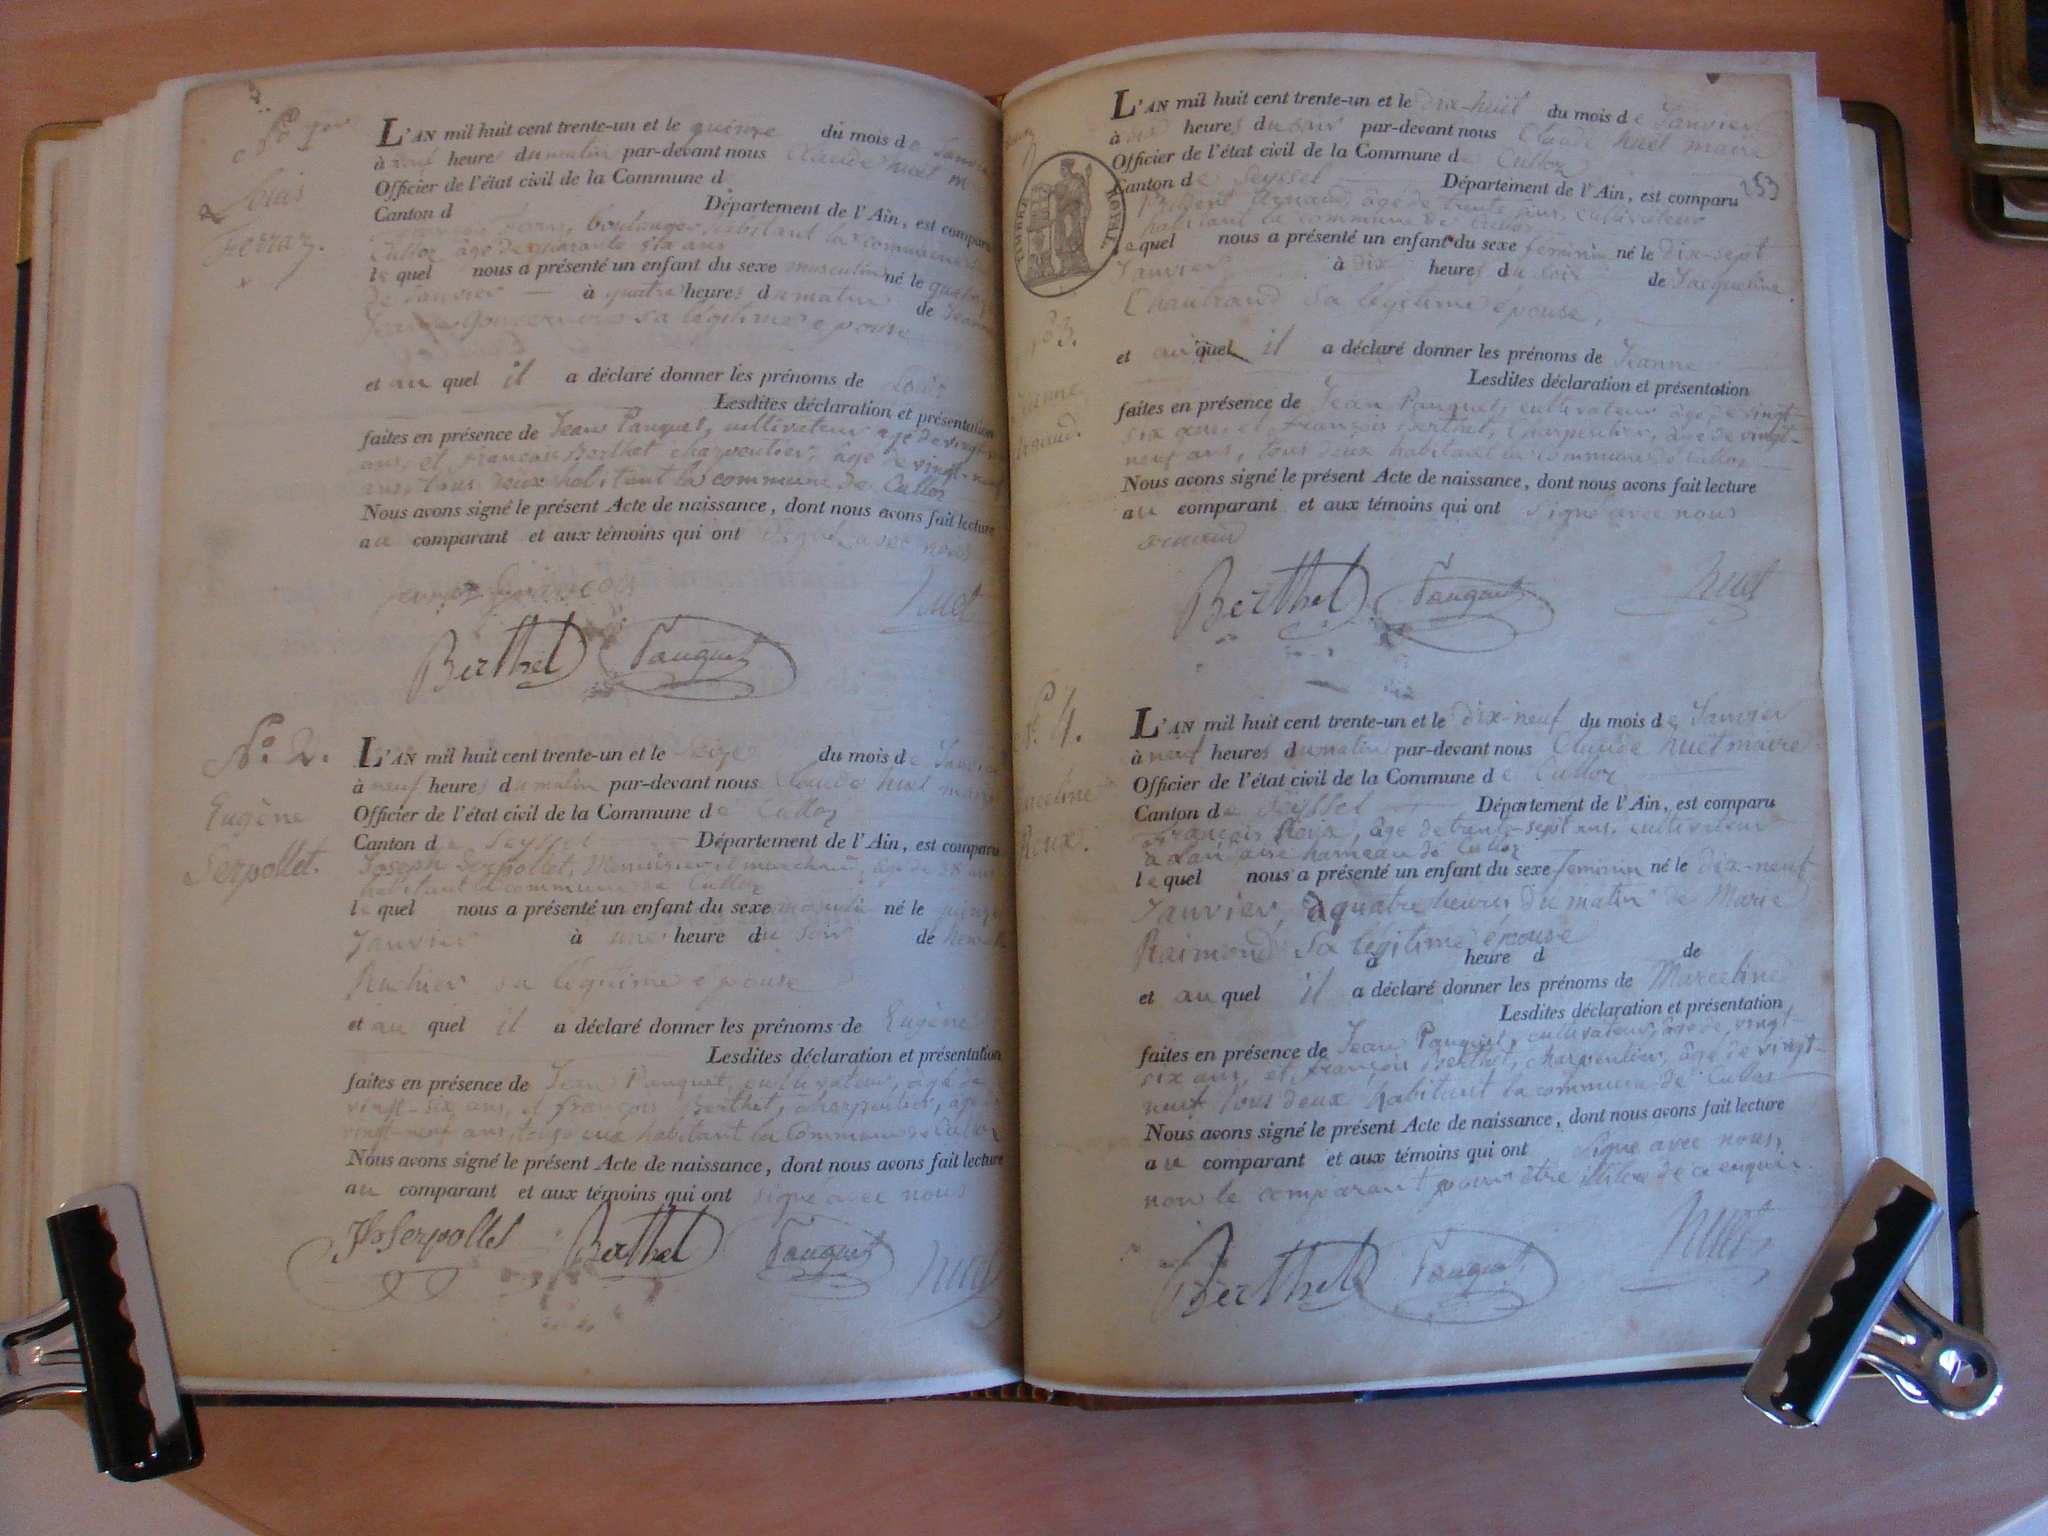 Louis
Ferraz.
L'AN mil huit cent trente-un et le quinze du mois de Janvier
à neuf heures du matin par-devant nous Claude huet
Officier de l'état civil de la Commune d
Canton d Département de l'Ain, est comparu
boulanger habitant la commune
Culloz âgé de quarante six ans
lequel nous a présenté un enfant du sexe masculin né le
de Janvier à quatre heures du matin de Jeanne
sa légitime épouse
et au quel il a déclaré donner les prénoms de Louis
Lesdites déclaration et présentation
faites en présence de Jean Pauquet, cultivateur âgé de vingt-
ans, et françois Berthet charpentier, âgé de vingt-neuf
ans, tous deux habitant la commune de Culloz
Nous avons signé le présent Acte de naissance, dont nous avons fait lecture
au comparant et aux témoins qui ont signé avec nous
huet
Berthet Pauquet
N° 2.
Eugène
Serpollet.
L'AN mil huit cent trente-un et le Seize du mois de Janvier
à neuf heures du matin par-devant nous Claude huet maire
Officier de l'état civil de la Commune de Culloz
Canton de Seyssel Département de l'Ain, est comparu
Joseph Serpollet, Menuisier et marchand, âgé de 38 ans
habitant la commune de Culloz
lequel nous a présenté un enfant du sexe masculin né le quinze
Janvier à une heure du soir de
sa légitime épouse
et au quel il a déclaré donner les prénoms de Eugène
Lesdites déclaration et présentation
faites en présence de Jean Pauquet, cultivateur, âgé de
vingt-six ans, et françois Berthet, charpentier, âgé de
vingt-neuf ans, tous deux habitant la Commune de Culloz
Nous avons signé le présent Acte de naissance, dont nous avons fait lecture
au comparant et aux témoins qui ont signé avec nous
Jh Serpollet Berthet Pauquet huet
253
TIMBRE ROYAL
L'AN mil huit cent trente-un et le dix-huit du mois de Janvier
à heures du soir par-devant nous Claude huet maire
Officier de l'état civil de la Commune de Culloz
Canton de Seyssel Département de l'Ain, est comparu
Arnaud, âgé de trente ans, cultivateur
habitant la commune de Culloz
lequel nous a présenté un enfant du sexe féminin né le dix-sept
Janvier à dix heures du soir de Jacqueline
Chautrand sa légitime épouse,
et au quel il a déclaré donner les prénoms de Jeanne
Lesdites déclaration et présentation
faites en présence de Jean Pauquet, cultivateur âgé de vingt-
six ans, et françois Berthet, charpentier, âgé de vingt-
neuf ans, tous deux habitant la Commune de Culloz
Nous avons signé le présent Acte de naissance, dont nous avons fait lecture
au comparant et aux témoins qui ont signé avec nous
Berthet Pauquet huet
N° 4.
Marceline
Roux.
L'AN mil huit cent trente-un et le dix-neuf du mois de Janvier
à neuf heures du matin par-devant nous Claude huet maire
Officier de l'état civil de la Commune de Culloz
Canton de Seyssel Département de l'Ain, est comparu
François Roux, âgé de trente-sept ans, cultivateur
hameau de Culloz
lequel nous a présenté un enfant du sexe féminin né le dix-neuf
Janvier, à quatre heures du matin de Marie
Raimond sa légitime épouse
à heure d de
et au quel il a déclaré donner les prénoms de Marceline
Lesdites déclaration et présentation
faites en présence de Jean Pauquet, cultivateur, âgé de vingt-
six ans, et françois Berthet, charpentier, âgé de vingt-
neuf tous deux habitant la commune de Culloz
Nous avons signé le présent Acte de naissance, dont nous avons fait lecture
au comparant et aux témoins qui ont signé avec nous,
non le comparant pour être illitéré de ce enquis.
Berthet Pauquet huet